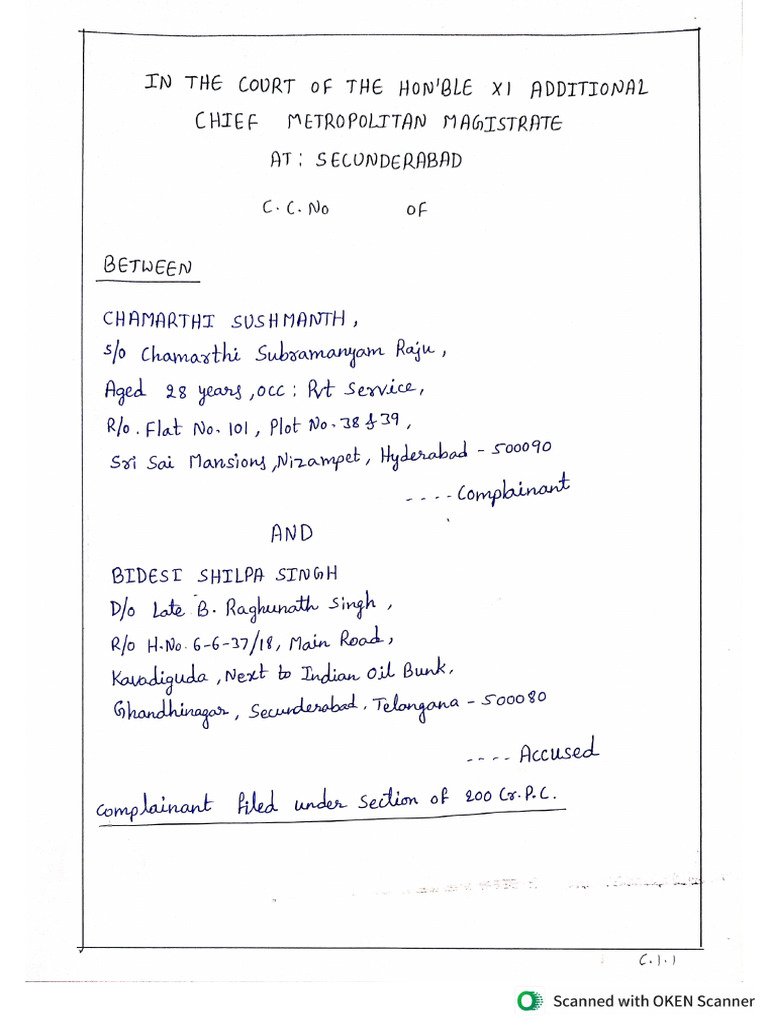 IN THE COURT OF THE HON'BLE XI ADDITIONAL
CHIEF METROPOLITAN MAGISTRATE
AT: SECUNDERABAD
C.C.No of
BETWEEN
CHAMARTHI SUSHMANTH,
S/o Chamarthi Subramanyam Raju,
Aged 28 years, occ: Pvt Service,
R/o. Flat No. 101, Plot No. 38 & 39,
Sri Sai Mansions, Nizampet, Hyderabad - 500090
---- Complainant
AND
BIDESI SHILPA SINGH
D/o Late B. Raghunath Singh,
R/o H.No. 6-6-37/18, Main Road,
Kavadiguda, Next to Indian Oil Bunk,
Ghandhinagar, Secunderabad, Telangana - 500080
---- Accused
Complainant filed under section of 200 Cr.P.C.
C.1.1
Scanned with OKEN Scanner